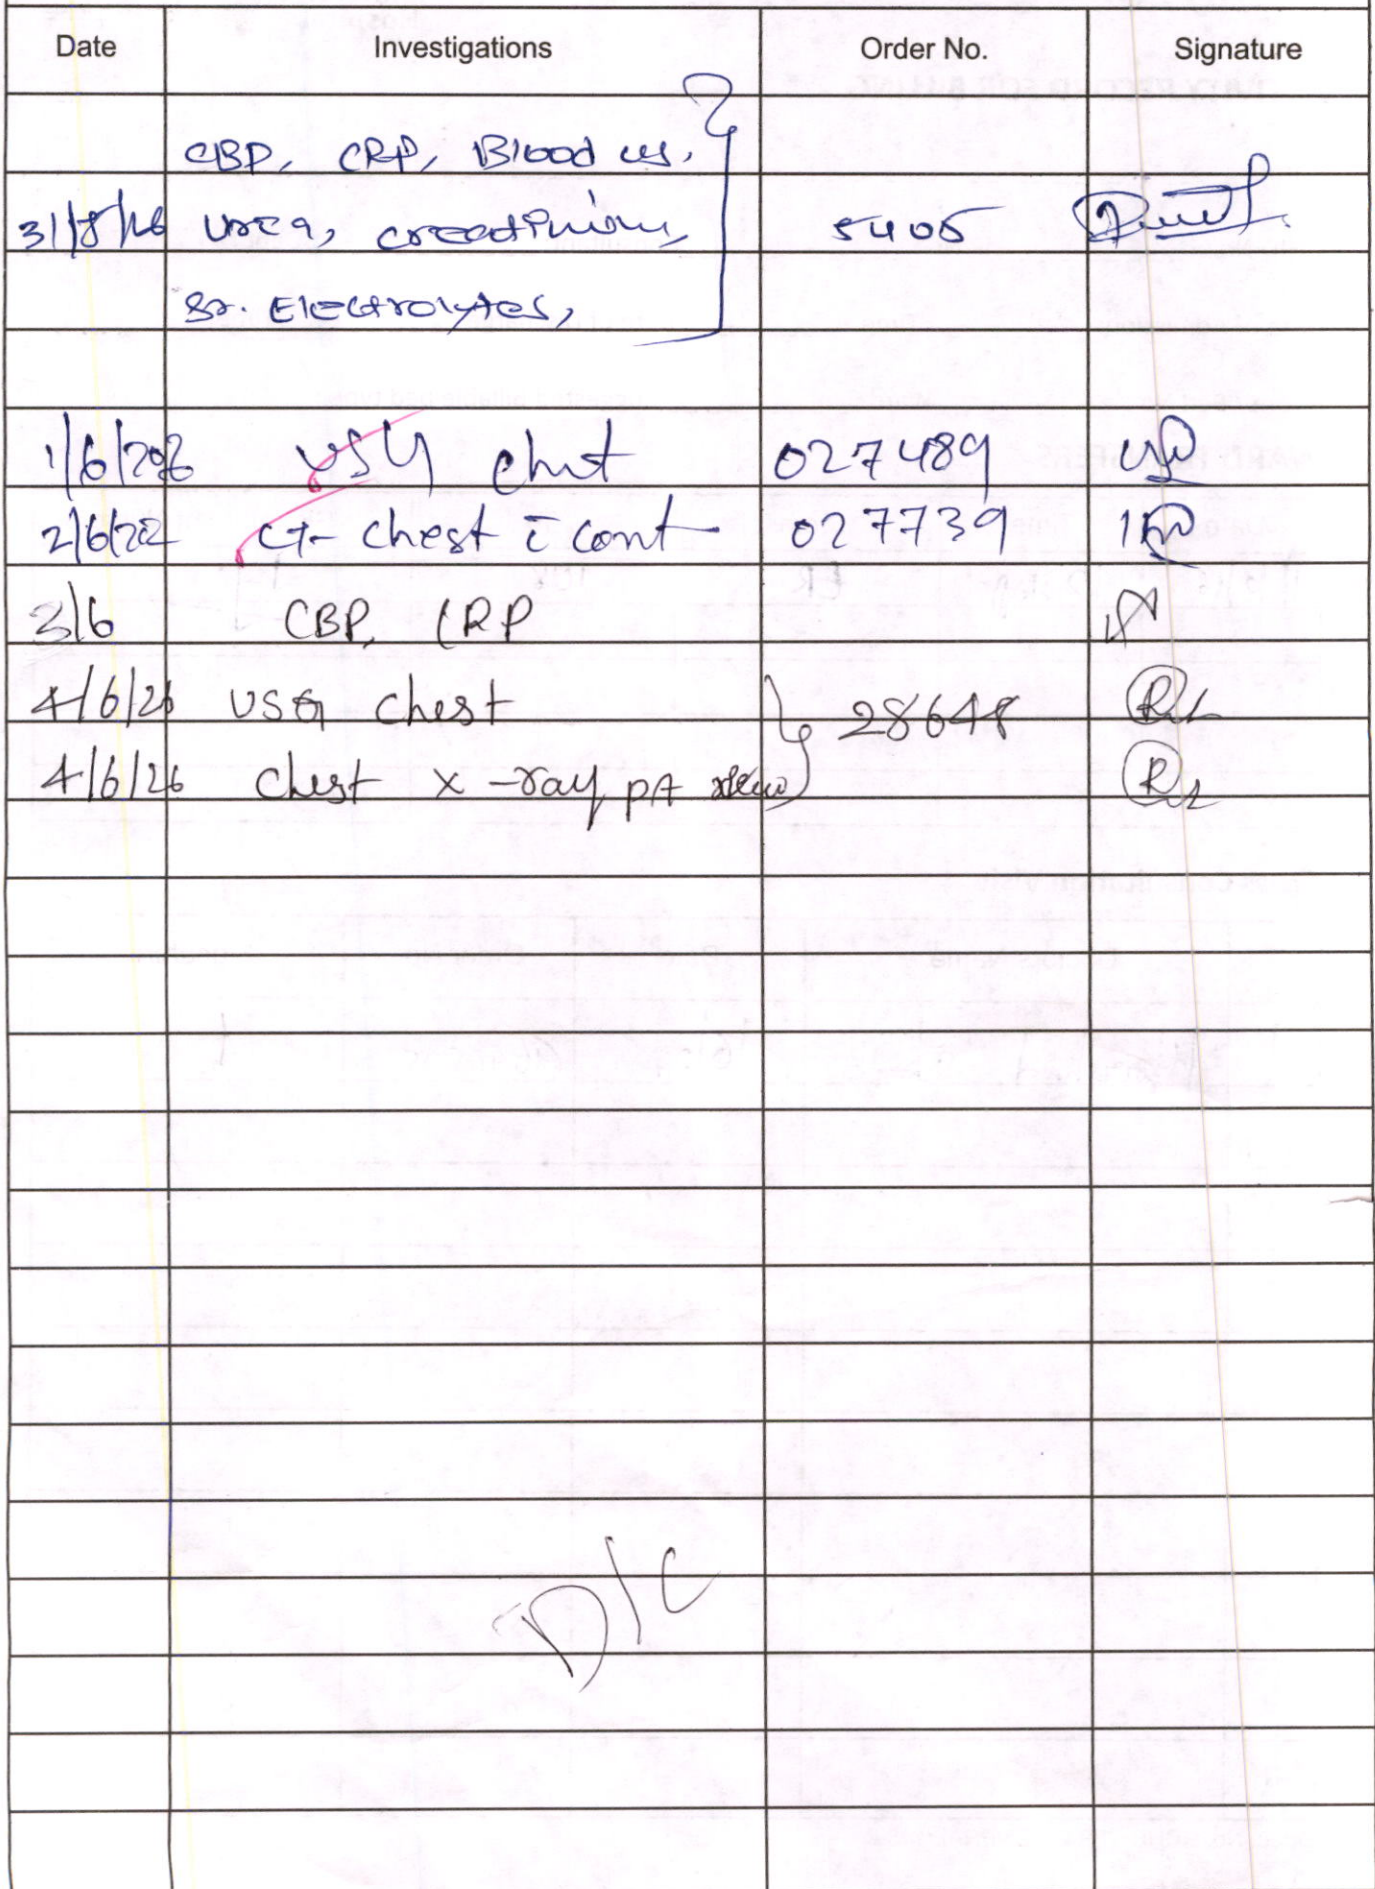 Date Investigations Order No. Signature
CBP, CRP, Blood us.
31/8/26 Urea, creatinine, 5405
Sr. Electrolytes,
1/6/206 USG chest 027489
2/6/202 CT- chest c̄ cont 027739
3/6 CBP, CRP
4/6/26 USG chest 28648
4/6/26 chest x-ray PA view
D/C